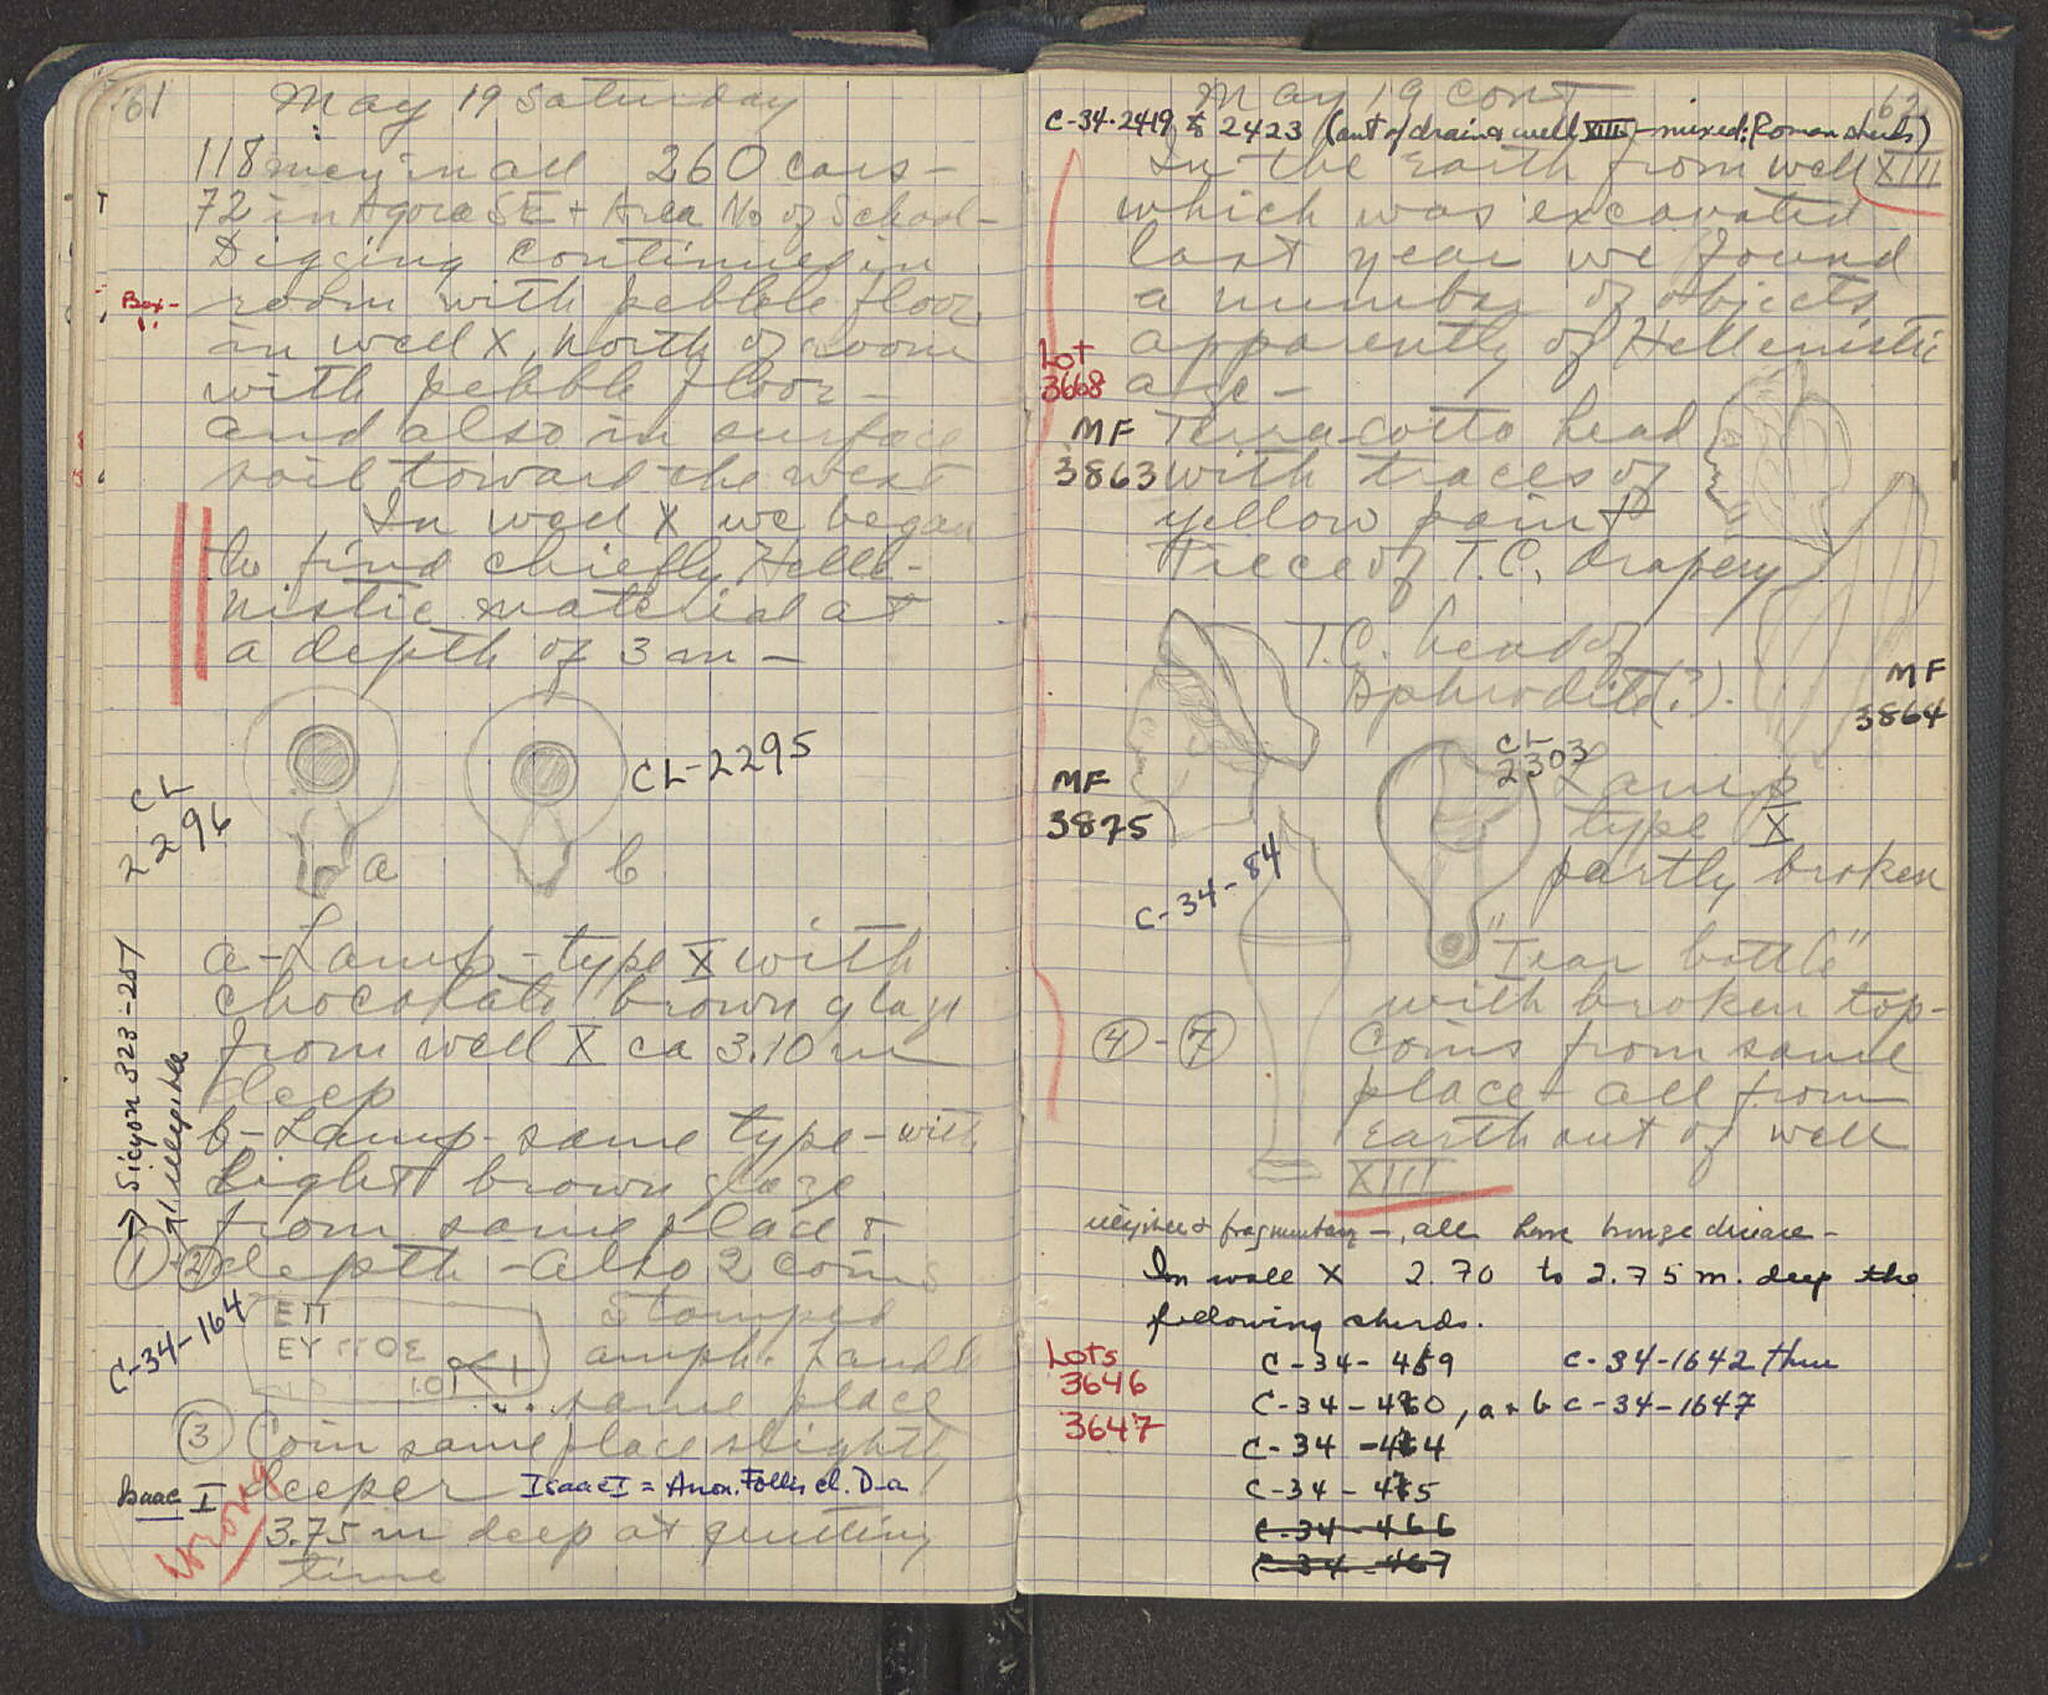 61
May 19 Saturday
118 men in all 260 cars -
72 in Agora SE + Area No of School -
Digging continued in
Box -
room with pebble floor
in well X, north of room
with pebble floor -
and also in surface
soil toward the west
In well X we began
to find chiefly Helle-
nistic material at
a depth of 3 m -
CL-2295
CL
2296
a
b
a - Lamp - type X with
chocolate brown glaze
from well X ca 3.10 m
deep
b - Lamp - same type - with
light brown glaze
from same place +
① - ② depth - also 2 coins
→ Sicyon 323-251
→ illegible
C-34-164
ΕΠ
ΕΥ ΠΟΣ
Stamped
amph. handle
same place
③ Coin same place slightly
deeper
Isaac I
Isaac I = Anon. Follis cl. D-a
wrong
3.75 m deep at quitting
time
62
May 19 cont
C-34-2419 to 2423 (out of drain & well XIII - mixed: Roman sherds)
In the earth from well XIII
which was excavated
last year we found
a number of objects
apparently of Hellenistic
age -
Lot
3668
MF
3863
Terra-cotta head
with traces of
yellow paint
Piece of T.C. drapery
T.C. head of
Aphrodite (?).
MF
3864
MF
3875
CL
2303
Lamp
type X
partly broken
C-34-84
"Tear bottle"
with broken top -
④ - ⑦ Coins from same
place - all from
earth out of well
XIII
illegible & fragmentary -, all have bronze disease -
In well X 2.70 to 2.75 m. deep the
following sherds.
Lots
3646
3647
C-34-459 C-34-1642 thru
C-34-460, a + b C-34-1647
C-34-464
C-34-465
C-34-466
C-34-467